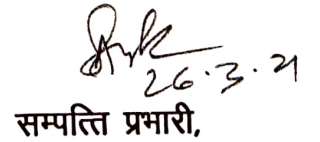 26.3.21
सम्पत्ति प्रभारी,